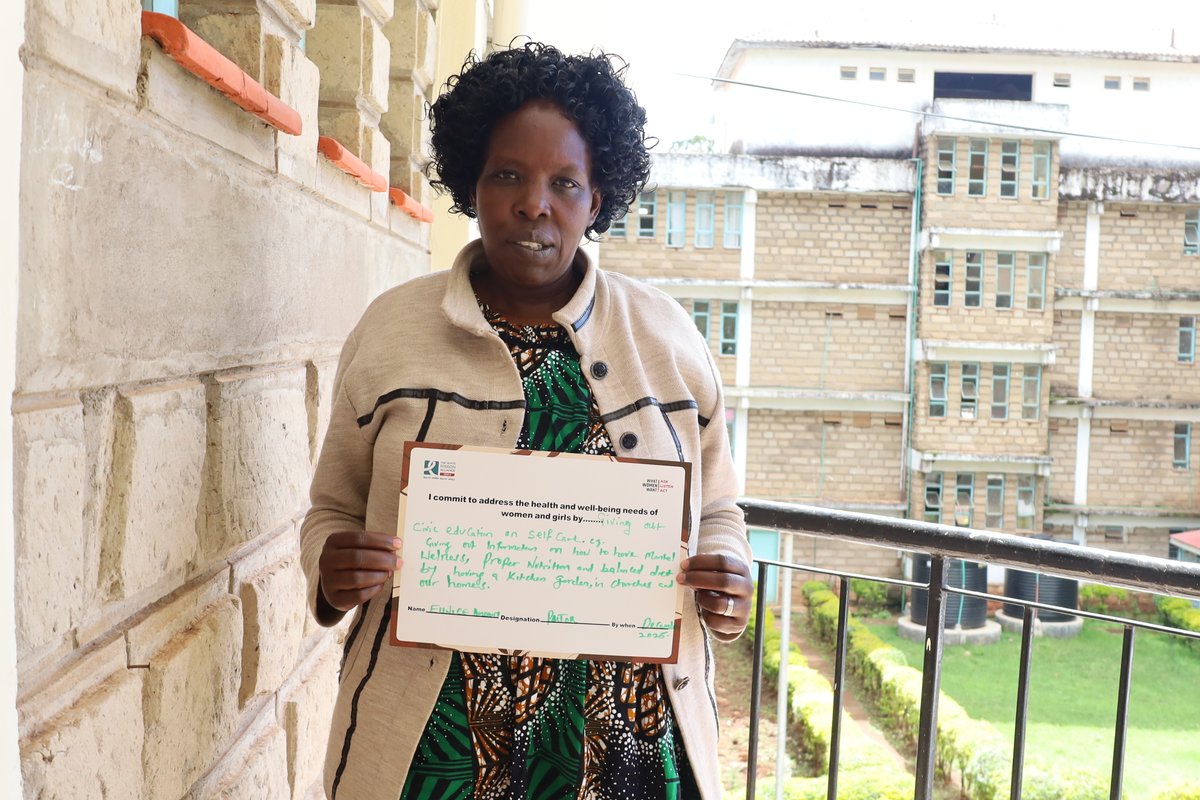 THE WHITE
RIBBON
ALLIANCE
WHAT
WOMEN
WANT
ASK
LISTEN
ACT
I commit to address the health and well-being needs of
women and girls by........giving out
Civic education on self Care. eg.
Giving out Information on how to have Mental
Welness, Proper Nutrition and balanced diet
by having a Kitchen garden, in churches and
our homes.
Name Designation PASTOR By when Decemb
2026.